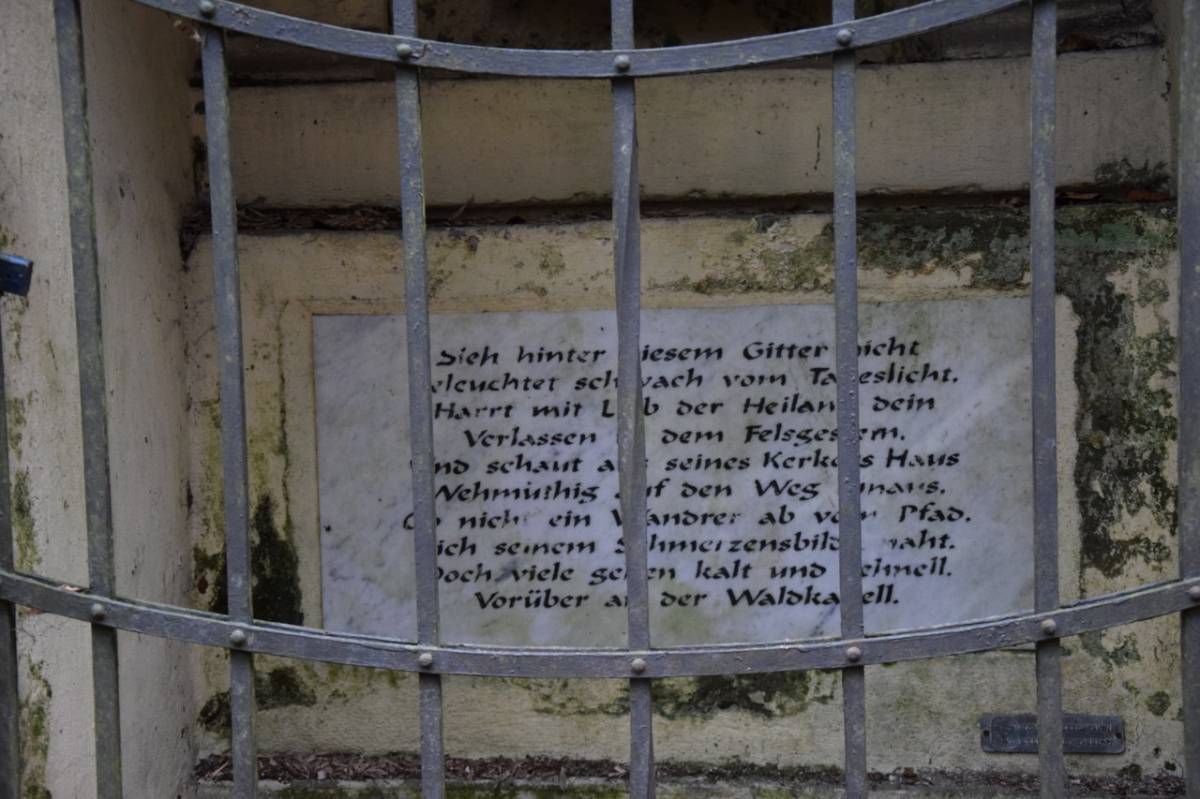 Sieh hinter diesem Gitter nicht
Beleuchtet schwach vom Tageslicht.
Harrt mit Lieb der Heiland dein
Verlassen dem Felsgestein.
Und schaut aus seines Kerkers Haus
Wehmüthig auf den Weg hinaus.
Ob nicht ein Wandrer ab vom Pfad.
Sich seinem Schmerzensbild naht.
Doch viele gehen kalt und schnell.
Vorüber an der Waldkapell.